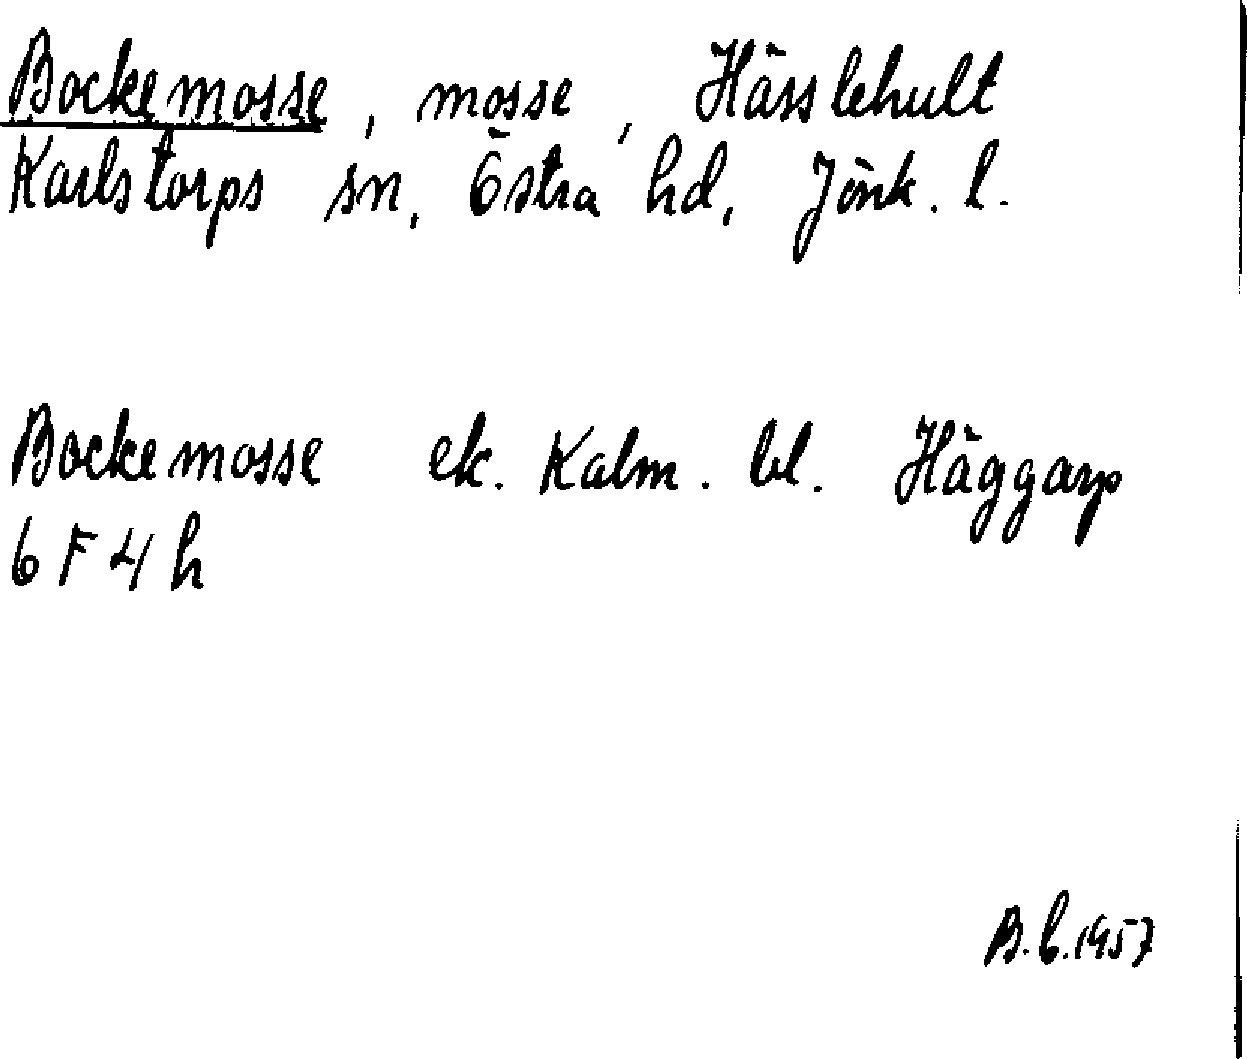 Bockemosse, mosse, Hässlehult
Karlstorps sn, Östra hd, Jönk. l.
Bockemosse ek. Kalm. bl. Häggarp
6 F 4 h
B.b.1957